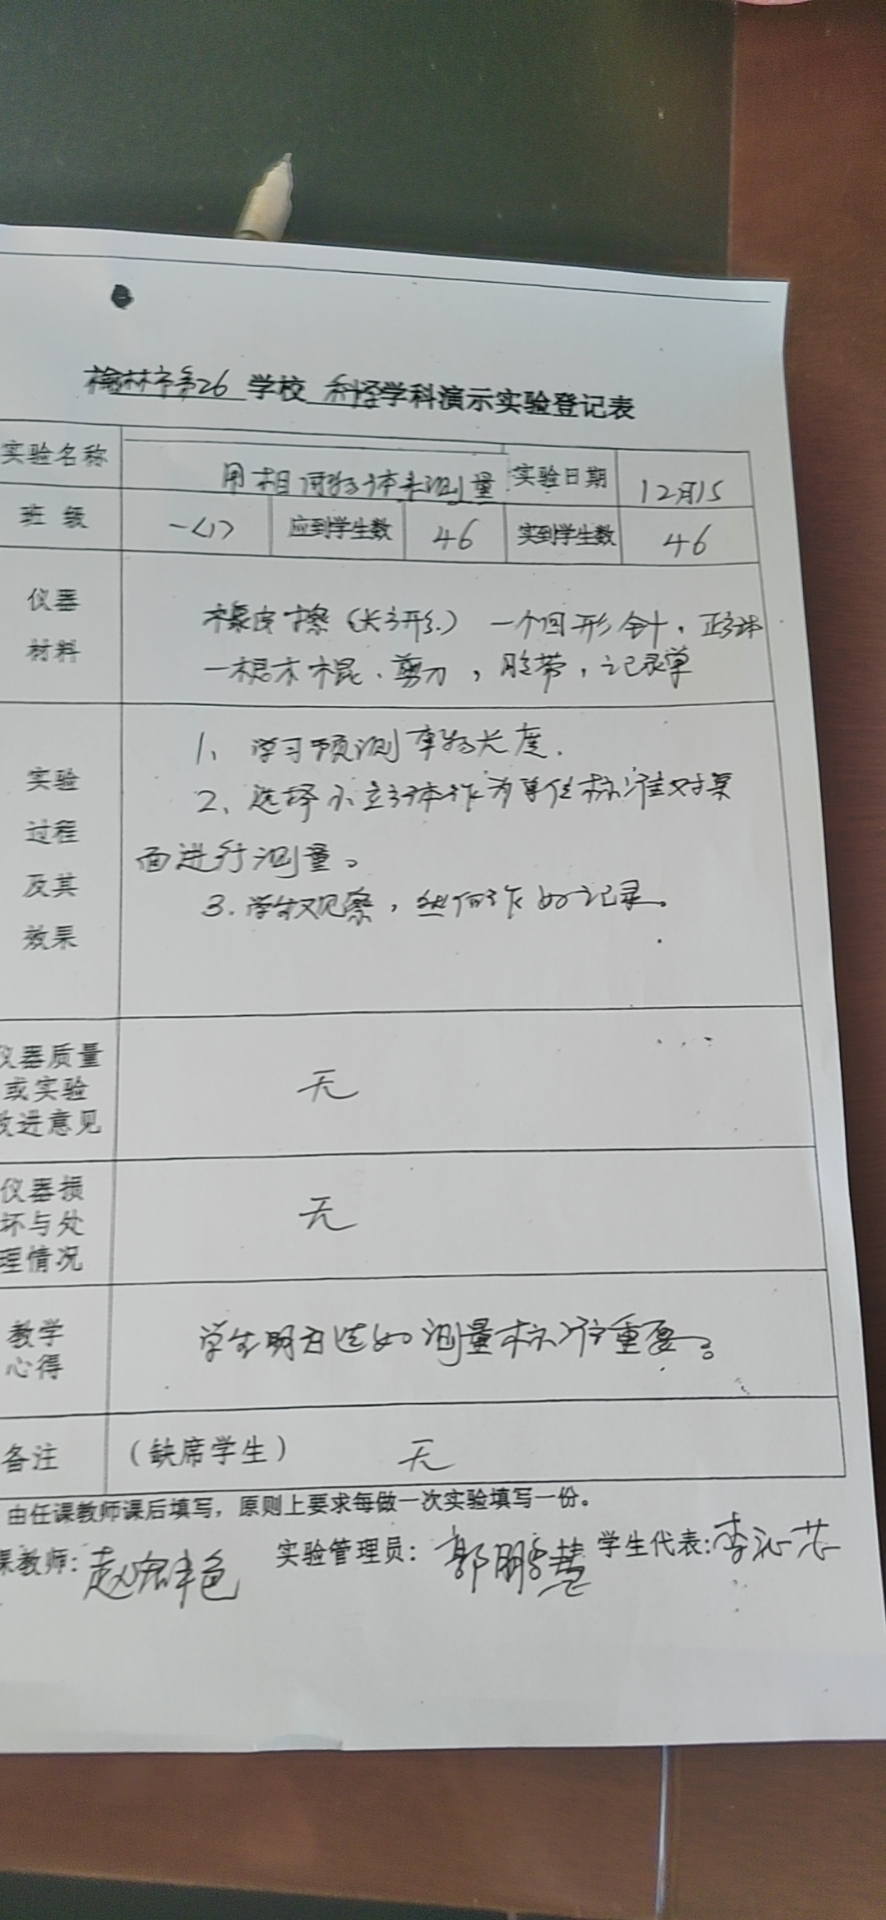 榆林市第26 学校 科学学科演示实验登记表
实验名称 用相同物体来测量 实验日期 12月15
班 级 一<1> 应到学生数 46 实到学生数 46
仪器
材料
橡皮擦(长方形) 一个回形针,正方体
一根木棍、剪刀,胶带,记录单
实验
过程
及其
效果
1、学习预测事物长度.
2、选择小立方体作为单位标准对桌
面进行测量。
3.学生观察,然后作好记录。
仪器质量
或实验
改进意见
无
仪器损
坏与处
理情况
无
教学
心得
学生明白选好测量标准重要。
备注 (缺席学生) 无
由任课教师课后填写,原则上要求每做一次实验填写一份。
课教师: 赵 艳 实验管理员: 郭鹏慧 学生代表:李沁芯